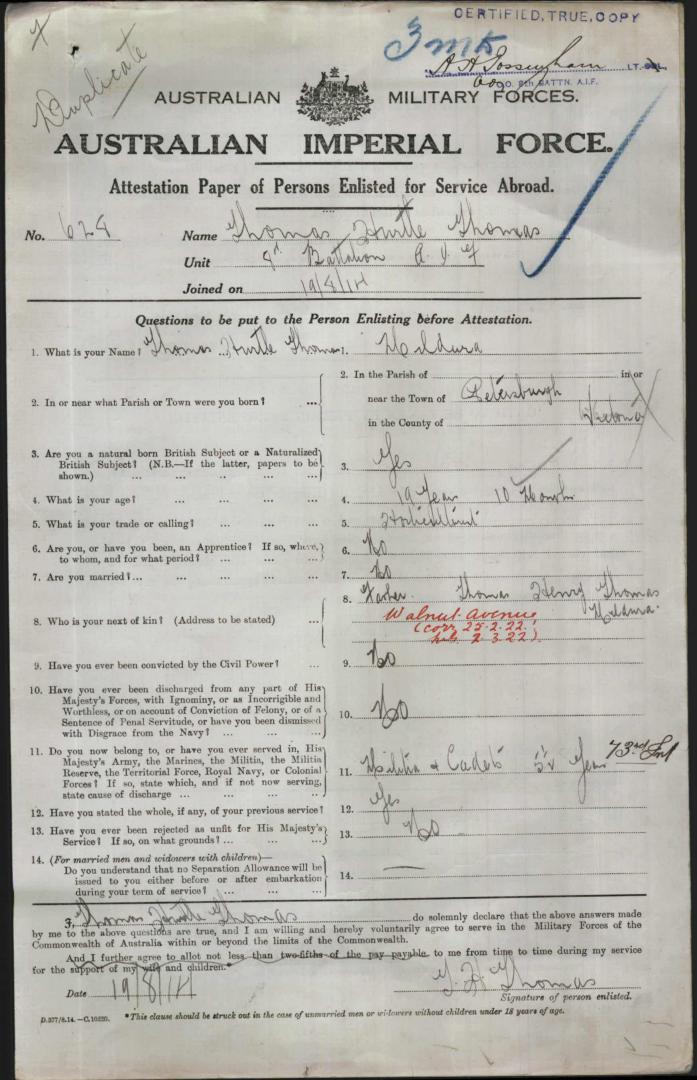 CERTIFIED, TRUE, COPY
3 MK
Duplicate
LT. COL.
O.C. 8th BATTN. A.I.F.
AUSTRALIAN MILITARY FORCES.
AUSTRALIAN IMPERIAL FORCE.
Attestation Paper of Persons Enlisted for Service Abroad.
No. 628 Name Thomas Hurtle Thomas
Unit 8th Battalion A.I.F
Joined on 19/8/14
Questions to be put to the Person Enlisting before Attestation.
1. What is your Name? Thomas Hurtle Thomas. Mildura
2. In or near what Parish or Town were you born? ...
2. In the Parish of in or
near the Town of Petersburgh
in the County of Victoria
3. Are you a natural born British Subject or a Naturalized
British Subject? (N.B.—If the latter, papers to be
shown.) ... ... ... ...
3. Yes
4. What is your age? ... ... ... ...
4. 19 Years 10 Months
5. What is your trade or calling? ... ... ...
5.
6. Are you, or have you been, an Apprentice? If so, where,
to whom, and for what period? ... ... ...
6. No
7. Are you married?... ... ... ... ...
7. No
8. Who is your next of kin? (Address to be stated) ...
8. Father. Thomas Henry Thomas
Walnut Avenue Mildura.
(corr. 25.2.22.
2.3.22)
9. Have you ever been convicted by the Civil Power? ...
9. No
10. Have you ever been discharged from any part of His
Majesty's Forces, with Ignominy, or as Incorrigible and
Worthless, or on account of Conviction of Felony, or of a
Sentence of Penal Servitude, or have you been dismissed
with Disgrace from the Navy? ... ... ...
10. No
11. Do you now belong to, or have you ever served in, His
Majesty's Army, the Marines, the Militia, the Militia
Reserve, the Territorial Force, Royal Navy, or Colonial
Forces? If so, state which, and if not now serving,
state cause of discharge ... ... ... ...
11. Militia & Cadets Years 73rd Inf
12. Have you stated the whole, if any, of your previous service?
12. Yes
13. Have you ever been rejected as unfit for His Majesty's
Service? If so, on what grounds? ... ...
13. No
14. (For married men and widowers with children)—
Do you understand that no Separation Allowance will be
issued to you either before or after embarkation
during your term of service? ... ... ...
14. —
I, Thomas Hurtle Thomas do solemnly declare that the above answers made
by me to the above questions are true, and I am willing and hereby voluntarily agree to serve in the Military Forces of the
Commonwealth of Australia within or beyond the limits of the Commonwealth.
And I further agree to allot not less than two-fifths of the pay payable to me from time to time during my service
for the support of my wife and children.*
Date 19/8/14 T. H Thomas
Signature of person enlisted.
D.377/8.14.—C.10220. *This clause should be struck out in the case of unmarried men or widowers without children under 18 years of age.